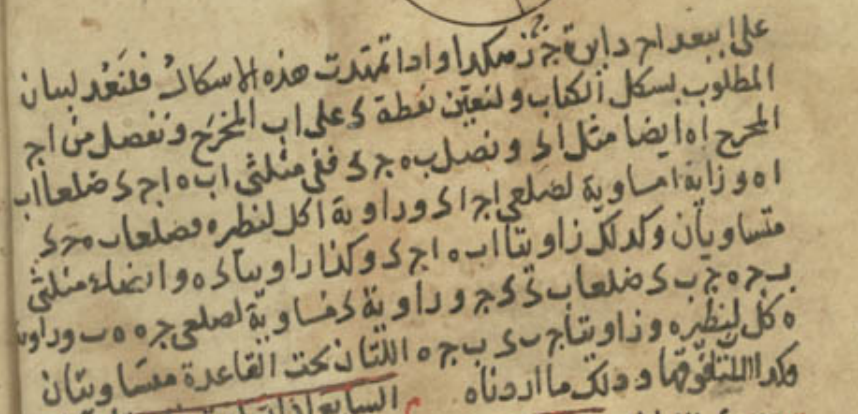 على ا ببعد اج دايرة جَ ز هكدا وادا تمهدت هذه الاسكال فلنَعُد لبيان
المطلوب بسكل الكتاب ولنعيّن نقطة ى على اب المخرَج ونفصل من اج
المخرج اه ايضا مثل اى ونصل ب ه ج ى ففى مثلثى اب ه اج ى ضلعا اب
اه وزاية ا مساوية لضلعى اج اى وزاوية ا كل لنظيره فضلعا ب ه ج ى
متساويان وكدلك زاويتا اب ه اج ى وكذا زاويتا ى ه وايضا ء مثلثى
ب ج ه ج ب ى ضلعا ب ى ى ج وزاوية ى مساوية لضلعى ج ه ه ب وزاوية
ه كل لنظيره وزاويتا ج ب ى ب ج ه اللتان تحت القاعدة متساويتان
وكدا اللتا فوقها ودلك ما اردناه السابع